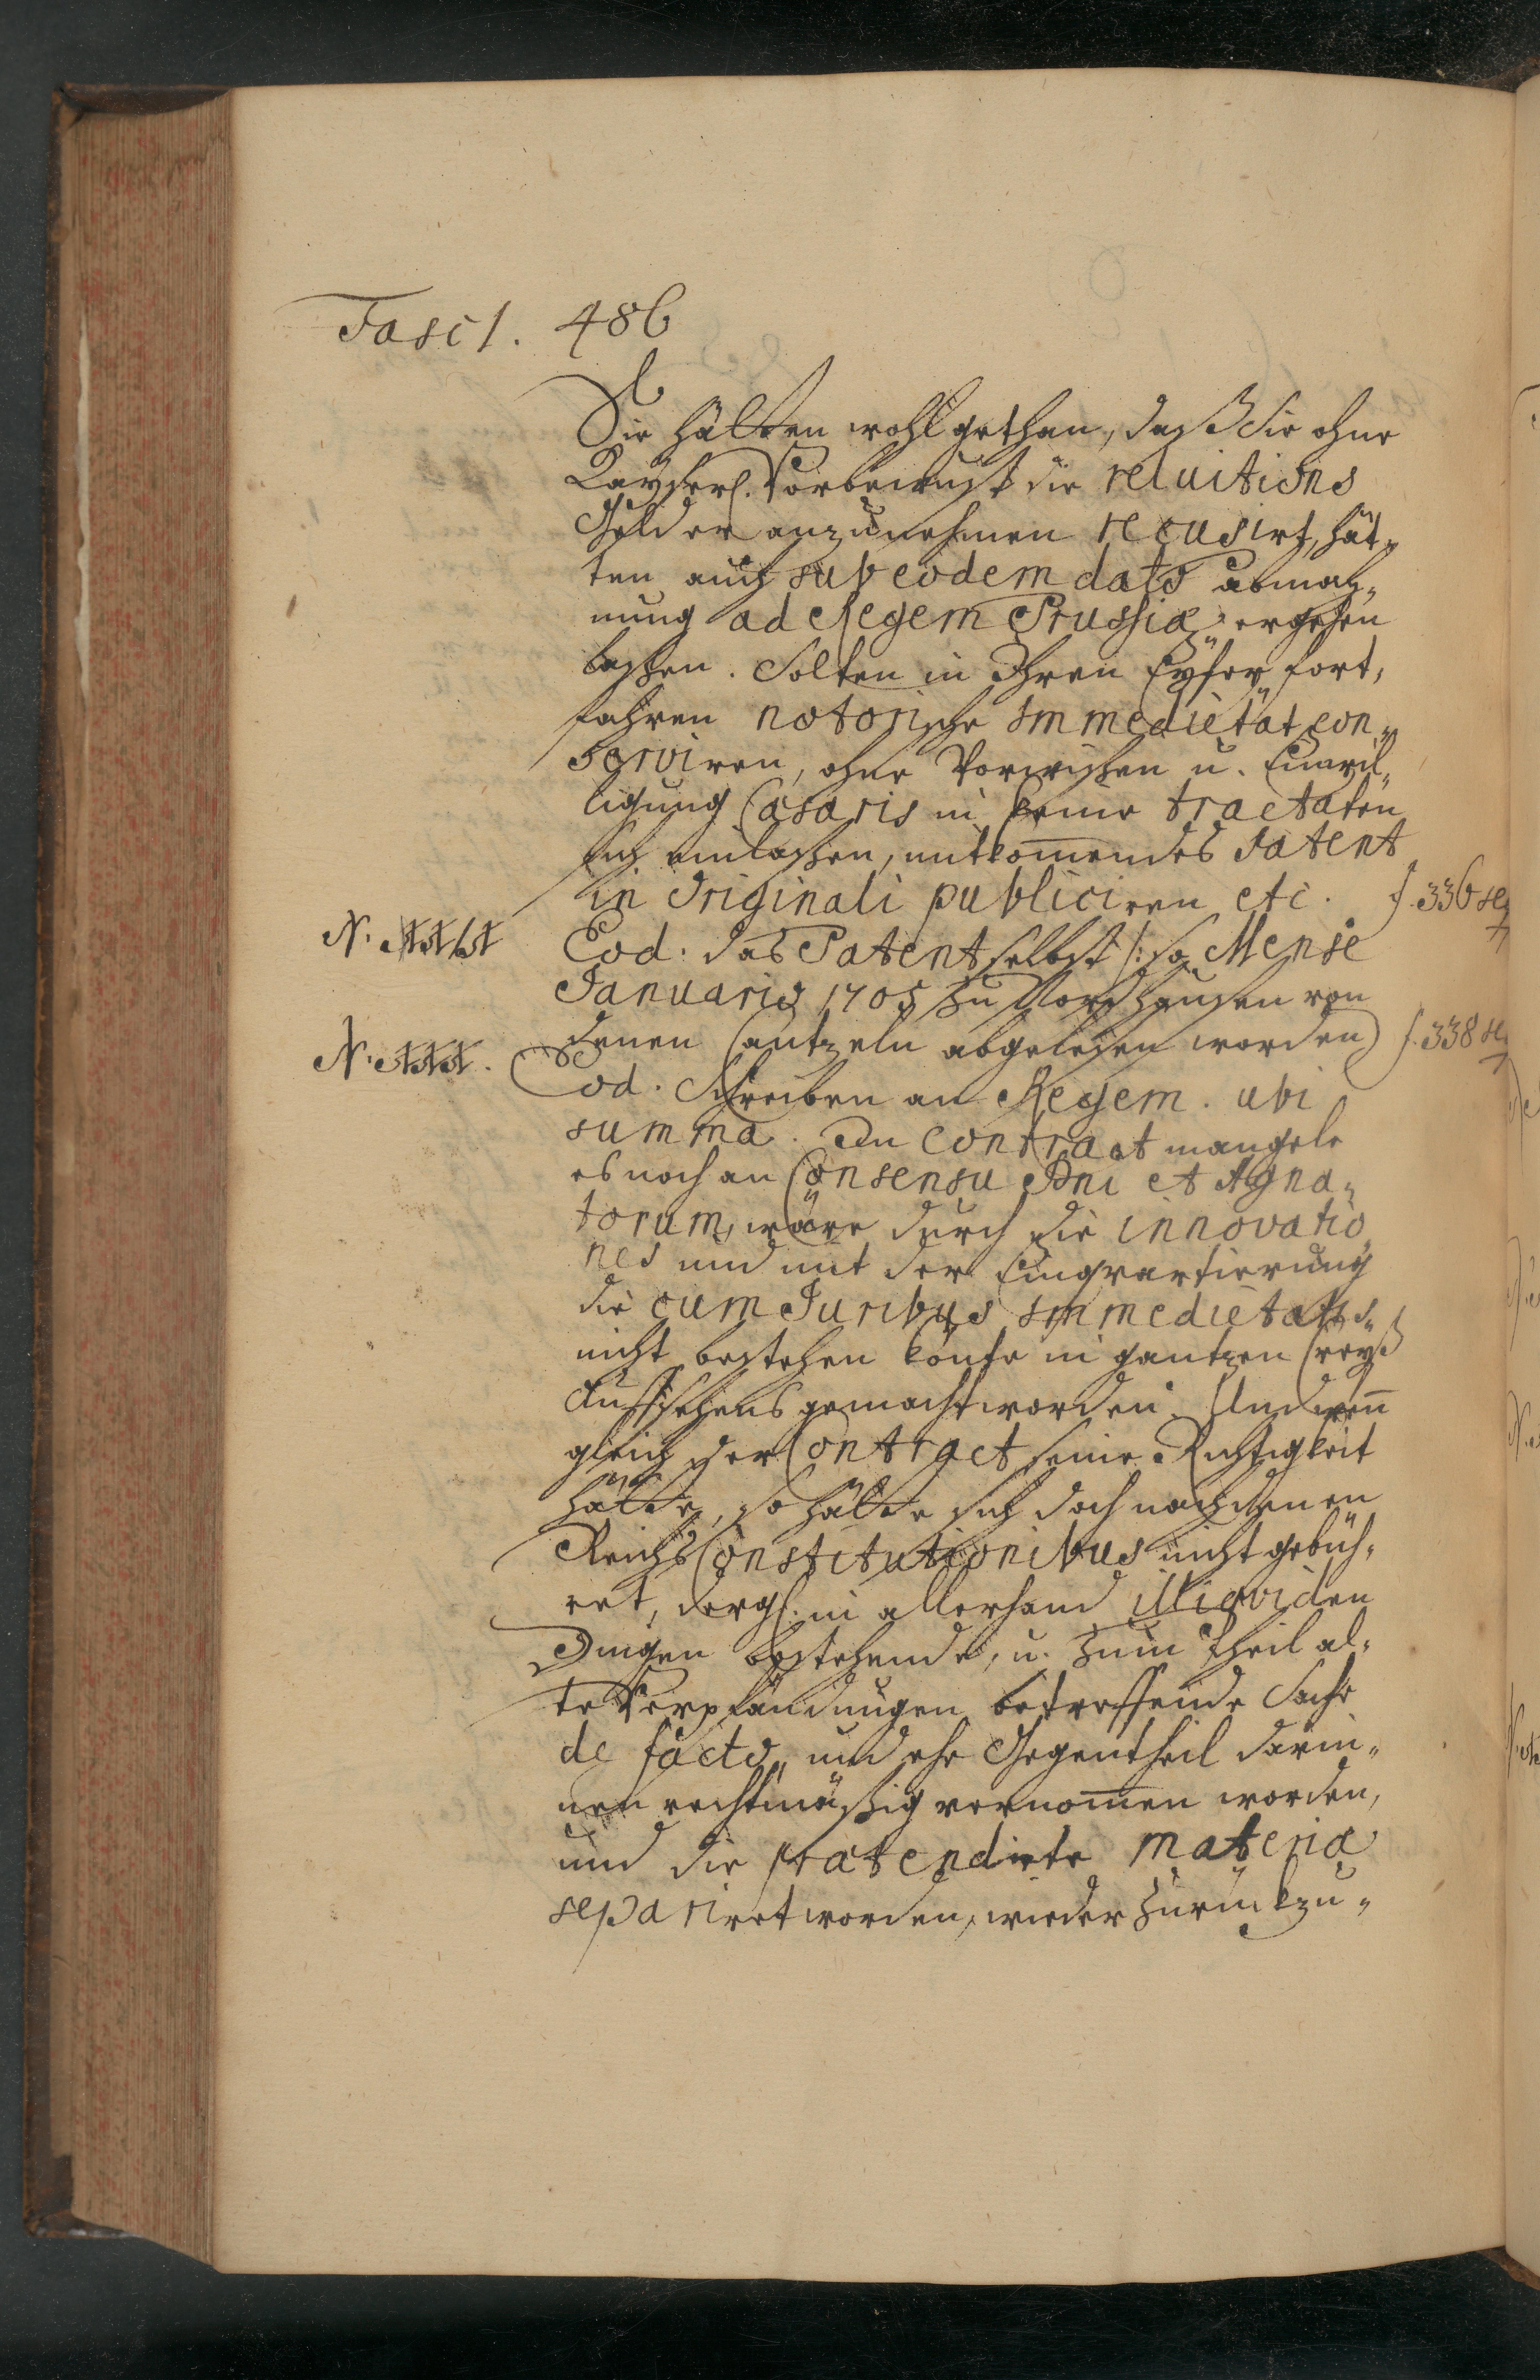 Fasc 1. 486
Sie hätten wohl gethan, daß Sie ohne
Kayserl. Vorbewust die reluitions
Gelder anzunehmen recusirt, hät-
ten auch sub eodem dato abmah-
nung ad Regem Prussiæ ergehen
lassen. Solten in Ihren Eyfer fort,
fahren notorische Immedietät con-
serviren, ohne Vorwissen u. Einwil-
ligung Cæsaris in keine tractaten
sich einlassen, mitkom̄endes Patent
in Originali publiciren etc. f. 336 seq
N. ttt tt Eod. das Patent selbst /: so Mense
Januario 1705 zu Nordhausen von
denen Cantzeln abgelesen worden) f. 338 seq
N. ttt. Eod. Schreiben an Regem. ubi
summa. Im Contract mangele
es noch an Consensu Dni et Agna-
torum, wäre durch die innovatio
nes und mit der Einqvartierung
die cum Juribus Immedietatis
nicht bestehen könte in gantzen Creyß
Aufsehens gemacht worden. Und wen̄
gleich der Contract seine Richtigkeit
hätte, so hätte sich doch nach denen
Reichs Constitutionibus nicht gebüh-
ret, dergl. in allerhand illiqviden
Dingen bestehende, u. zum theil al-
te Verpfändungen betreffende Sache
de facto, und ehe Gegentheil darin-
nen rechtmäßig vernom̄en worden,
und die prætendirte materiæ
separiret worden, wieder zurückzu-